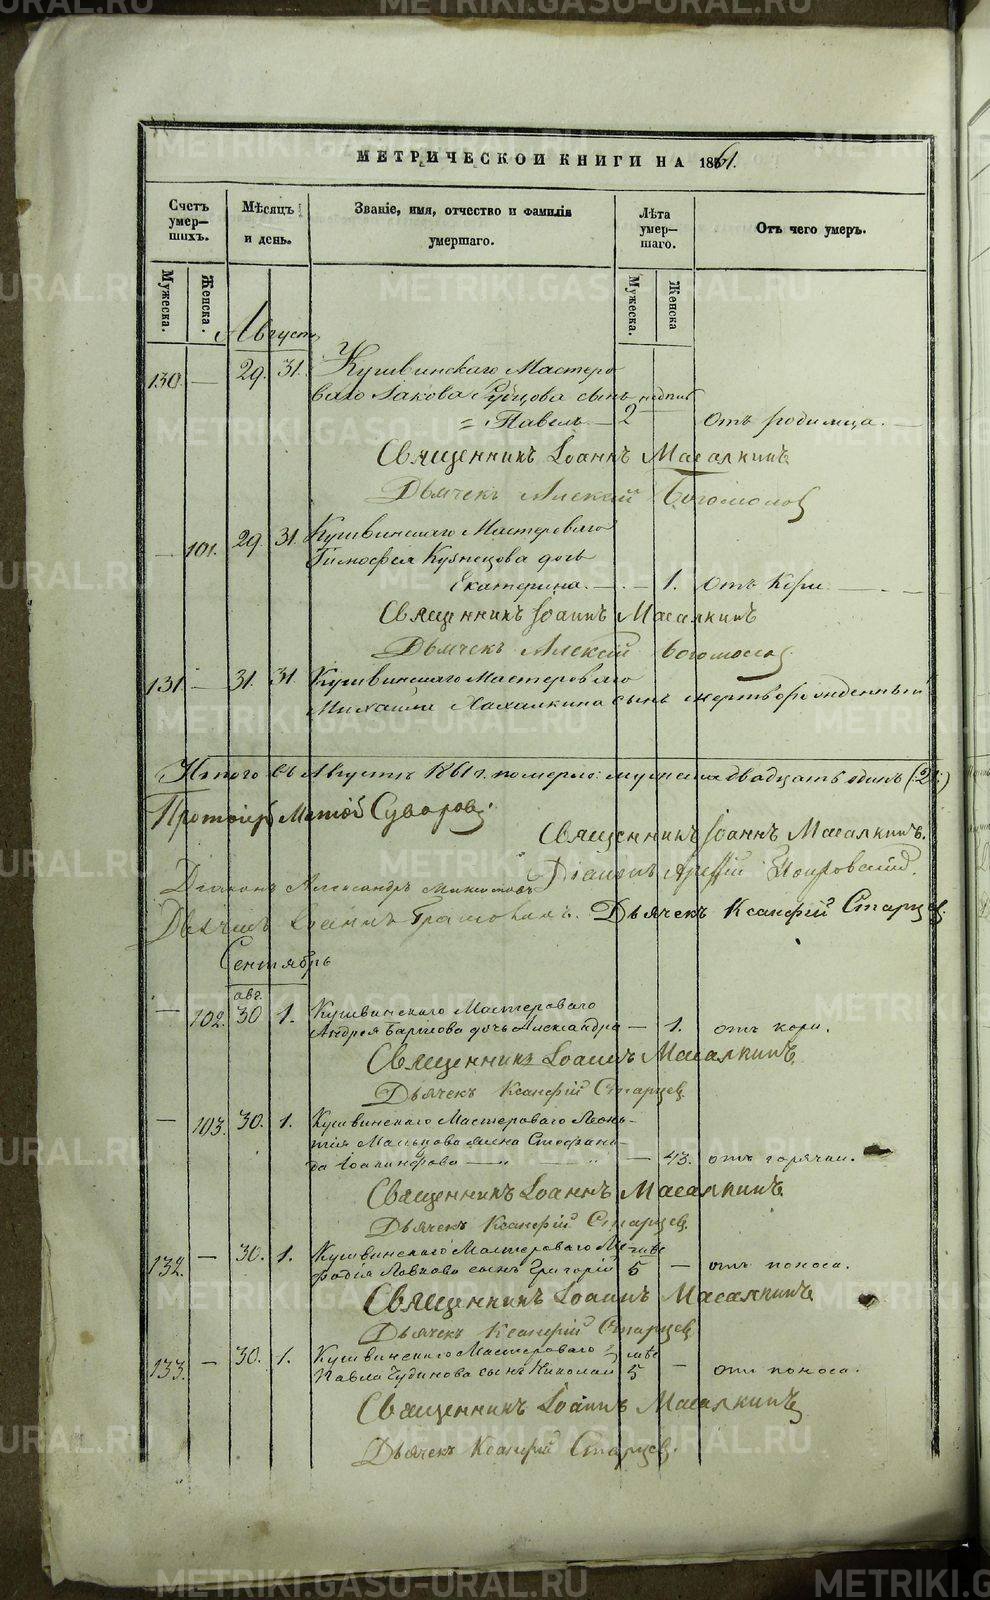 МЕТРИЧЕСКОЙ КНИГИ НА 1861.
Счетъ умер–шихъ.
Мѣсяцъ и день.
Званіе, имя, отчество и фамилія умершаго.
Лѣта умер–шаго.
Отъ чего умеръ.
Мужеска.
Женска.
Мужеска.
Женска
Августъ
130. — 29. 31. Кушвинскаго Мастеро
ваго Іакова сынъ
Павелъ — 2 отъ родимца.
Священникъ Іоаннъ Масалкинъ
Дьячекъ Алексій Богомолов
— 101. 29. 31. Кушвинскаго Мастероваго
Тимофея Кузнецова дочь
Екатерина. — 1. отъ кори.
Священникъ Іоаннъ Масалкинъ
Дьячекъ Алексій Богомолов
131. — 31. 31. Кушвинскаго Мастероваго
Михаила сынъ мертворожденный
Итого въ Августѣ 1861 г. померло: мужеска двадцать одинъ (21)
Протоіерей Суворовъ.
Священникъ Іоаннъ Масалкинъ.
Діаконъ Александръ
Діаконъ
Дьячекъ Іоаннъ
Дьячекъ Ксанфій Старцев.
Сентябрь
авг.
— 102. 30 1. Кушвинскаго Мастероваго
Андрея дочь Александра — 1. отъ кори.
Священникъ Іоаннъ Масалкинъ
Дьячекъ Ксанфій Старцев.
— 103. 30. 1. Кушвинскаго Мастероваго Леон-
тія Мальцова жена Стефани-
да — 43. отъ горячки.
Священникъ Іоаннъ Масалкинъ
Дьячекъ Ксанфій Старцев.
132. — 30. 1. Кушвинскаго Мастероваго Ме-
фодія сынъ Григорій 5 — отъ поноса.
Священникъ Іоаннъ Масалкинъ
Дьячекъ Ксанфій Старцев
133. — 30. 1. Кушвинскаго Мастероваго
Павла Чудинова сынъ Николай 5 — отъ поноса.
Священникъ Іоаннъ Масалкинъ
Дьячекъ Ксанфій Старцев.
METRIKI.GASO-URAL.RU